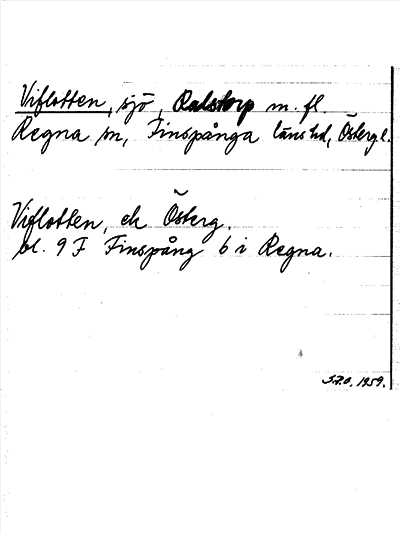 Viflotten, sjö, Ralstorp m. fl.
Regna sn, Finspånga läns hd, Östergl.
Viflotten, ek Österg.
bl. 9 F Finspång 6 i Regna.
S.F.O. 1959.